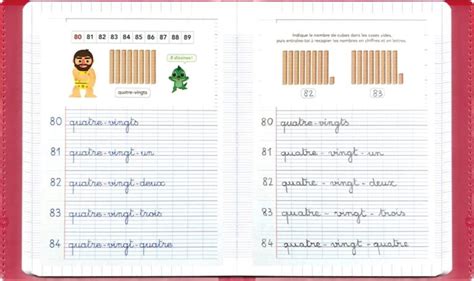 80 81 82 83 84 85 86 87 88 89
À dévorer !
quatre-vingts
80 quatre-vingts
81 quatre-vingt-un
82 quatre-vingt-deux
83 quatre-vingt-trois
84 quatre-vingt-quatre
Indique le nombre de cubes dans les cases vides,
puis entraîne-toi à recopier les nombres en chiffres et en lettres.
82 83
80 quatre-vingts
81 quatre-vingt-un
82 quatre-vingt-deux
83 quatre-vingt-trois
84 quatre-vingt-quatre